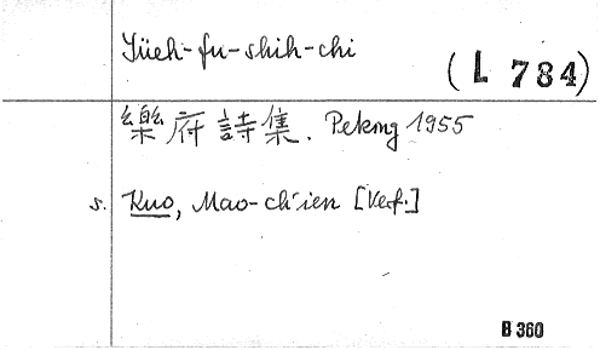 Yüeh-fu-shih-chi
(L 784)
樂府詩集. Peking 1955
s. Kuo, Mao-ch'ien [Verf.]
B 360